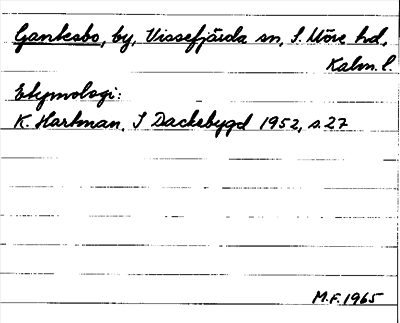 Gankesbo, by, Vissefjärda sn, S. Möre hd,
Kalm. l.
Etymologi:
K. Hartman, I Dackebygd 1952, s. 27
M.F. 1965